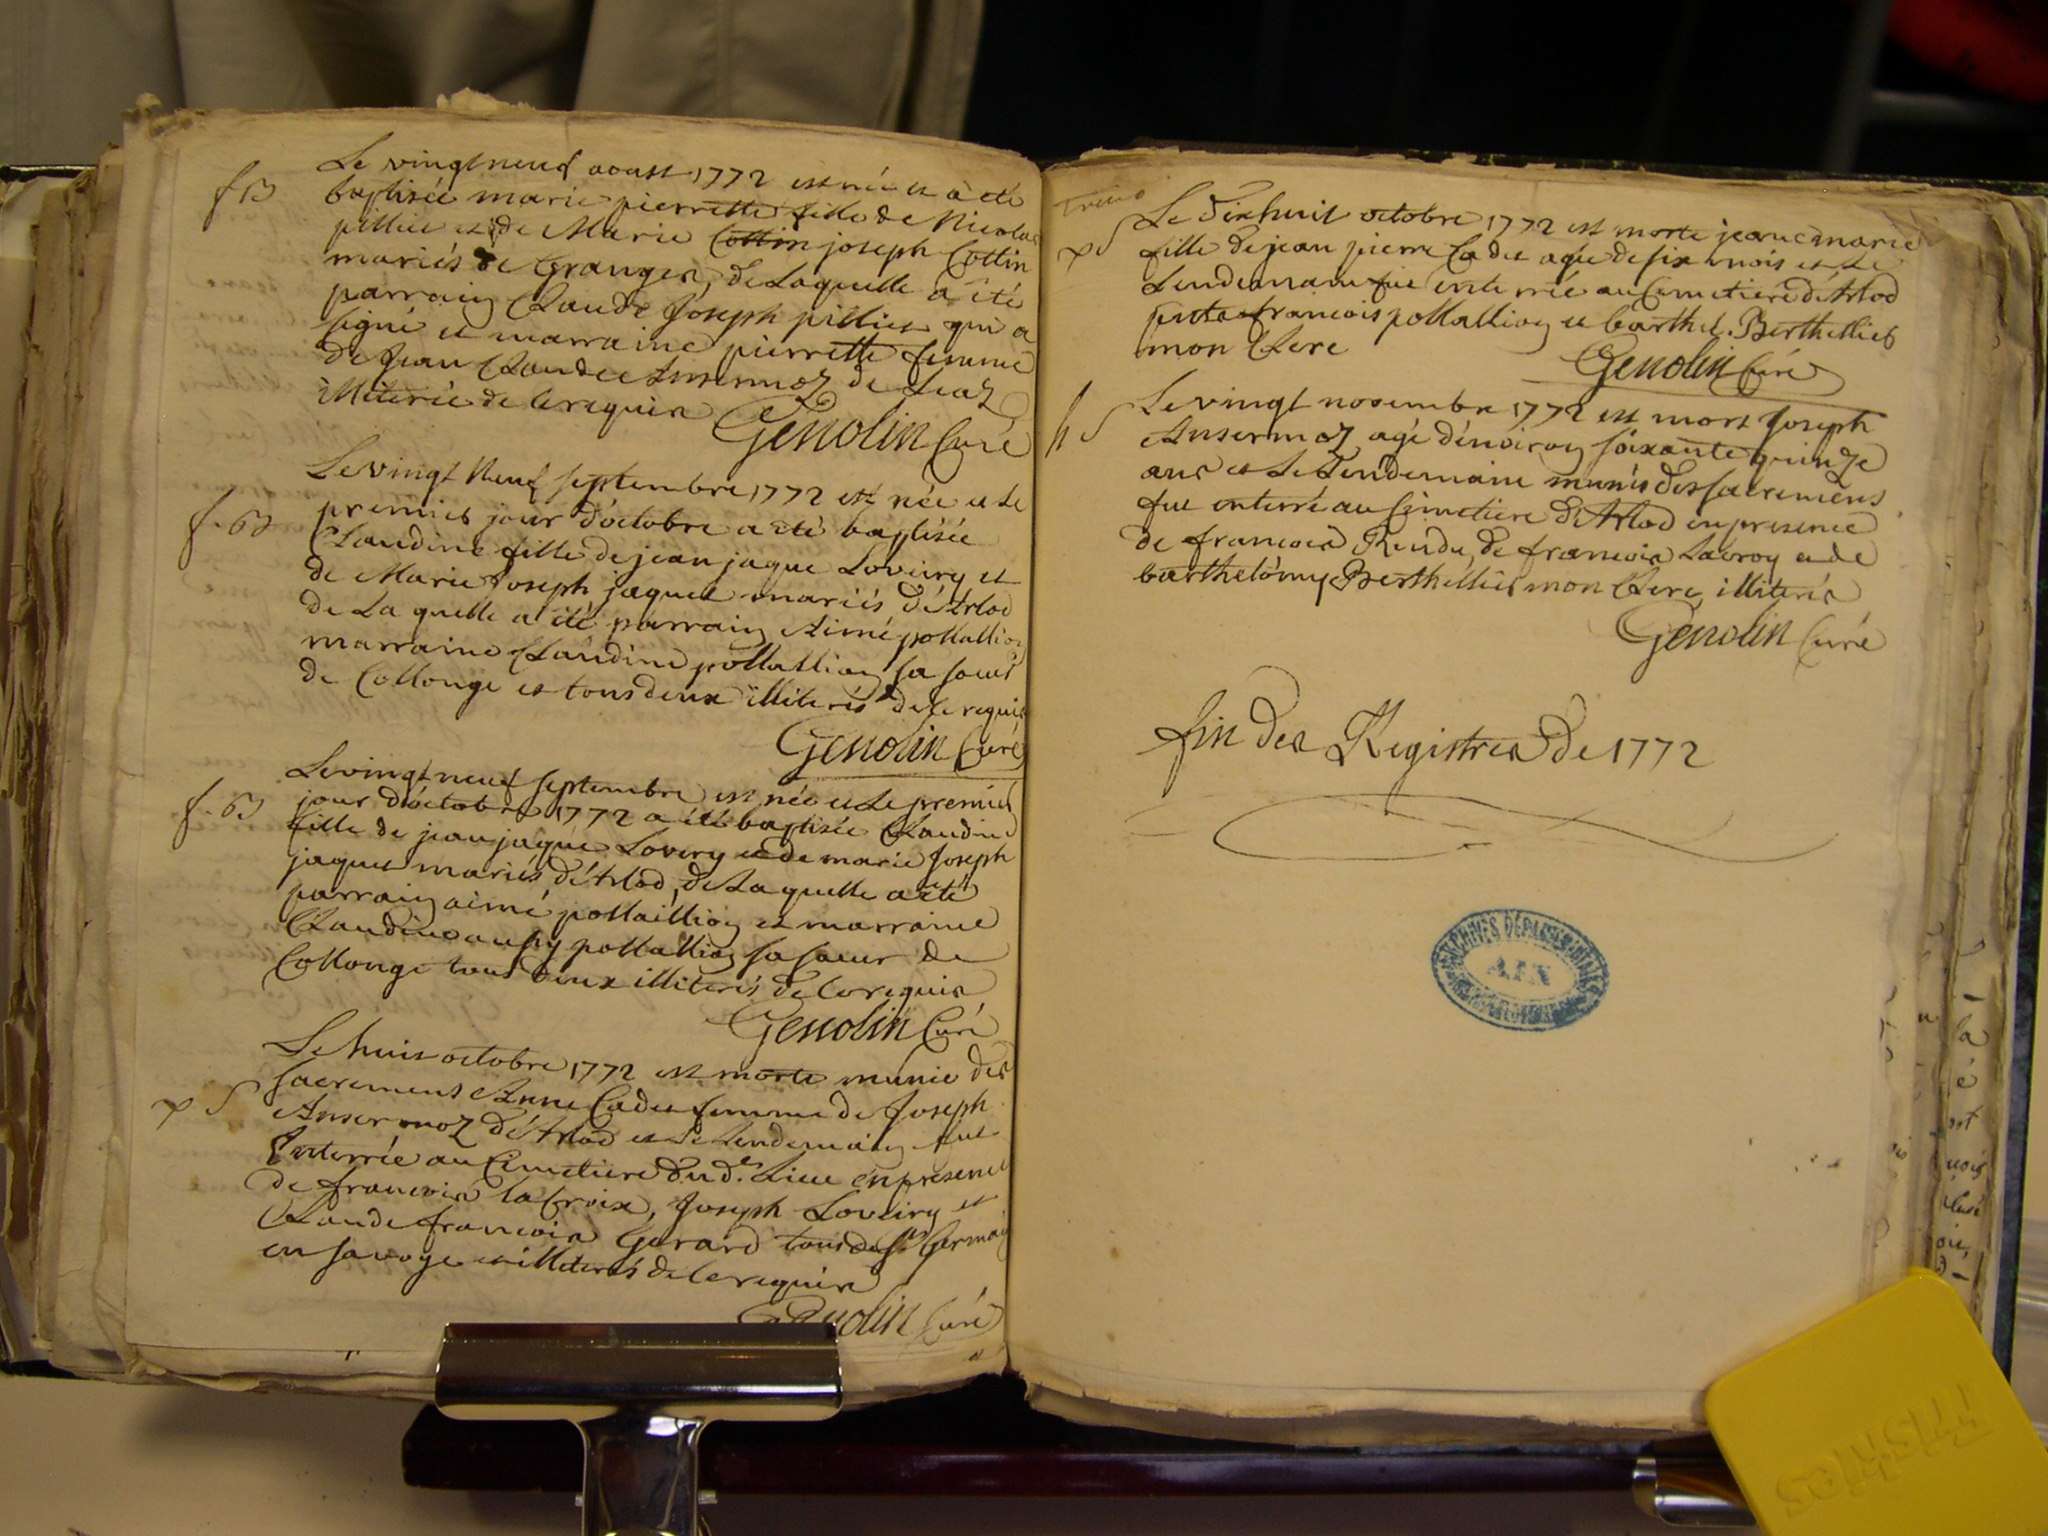 f B
Le vingt neuf aoust 1772 est née et a été
baptisée marie pierrette fille de Nicolas
pillier et de Marie Cottin joseph Cottin
mariés de Granges, de Laquelle a été
parrain Claude Joseph pillier qui a
signé et marraine pierrette femme
de Jean Claude Ansermoz de Leaz
illiterée de ce requise
Genolin Curé
f. B
Le vingt Neuf septembre 1772 est née et Le
premier jour d'octobre a été baptisée
Claudine fille de jean jaque Loveiry et
de Marie Joseph jaquet mariés d'Arlod
de La quelle a été parrain Aimé pollallion
marraine Claudine pollallion sa soeur
de Collonge et tous deux illiterés de ce requis
Genolin Curé
f. B
Le vingt neuf septembre est née et Le premier
jour d'octobre 1772 a été baptisée Claudine
fille de jean jaque Lovery et de marie Joseph
jaquet mariés d'Arlod, de Laquelle a été
parrain aimé pollaillion et marraine
Claudine aussy pollallion sa soeur de
Collonge tous deux illiterés de ce requis
Genolin Curé
S
Le huit octobre 1772 est morte munie des
sacremens Anne Cadet femme de Joseph
Ansermoz d'Arlod et Le Lendemain fut
Enterrée au Cimetiere dud. Lieu en presence
de francois la Croix, Joseph Loveiry et
Claude francois Gerard tous de St Germain
en savoye et illiterés de ce requis
Genolin Curé
S
Le dixhuit octobre 1772 est morte jeane marie
fille de jean pierre Cadet agée de six mois et Le
Lendemain fut enterrée au Cimetiére d'Arlod
francois pollallion et barthel. Berthellier
mon Clerc
Genolin Curé
h S
Le vingt novembre 1772 est mort Joseph
Ansermoz agé d'environ soixante quinze
ans et Le Lendemain munis des sacremens
fut enterré au Cimetiere d'Arlod en presence
de francois Rendu, de francois Lacroy et de
barthelémy Berthellier mon Clerc, illiterés
Genolin Curé
fin des Registres de 1772
ARCHIVES DÉPARTEMENTALES
AIN